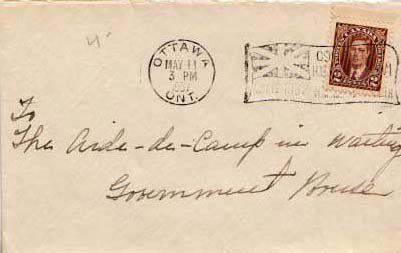 4
OTTAWA
MAY 11
3 PM
1937
ONT.
CANADA
2 2
To
The Aide-de-Camp in Waiting
Government House